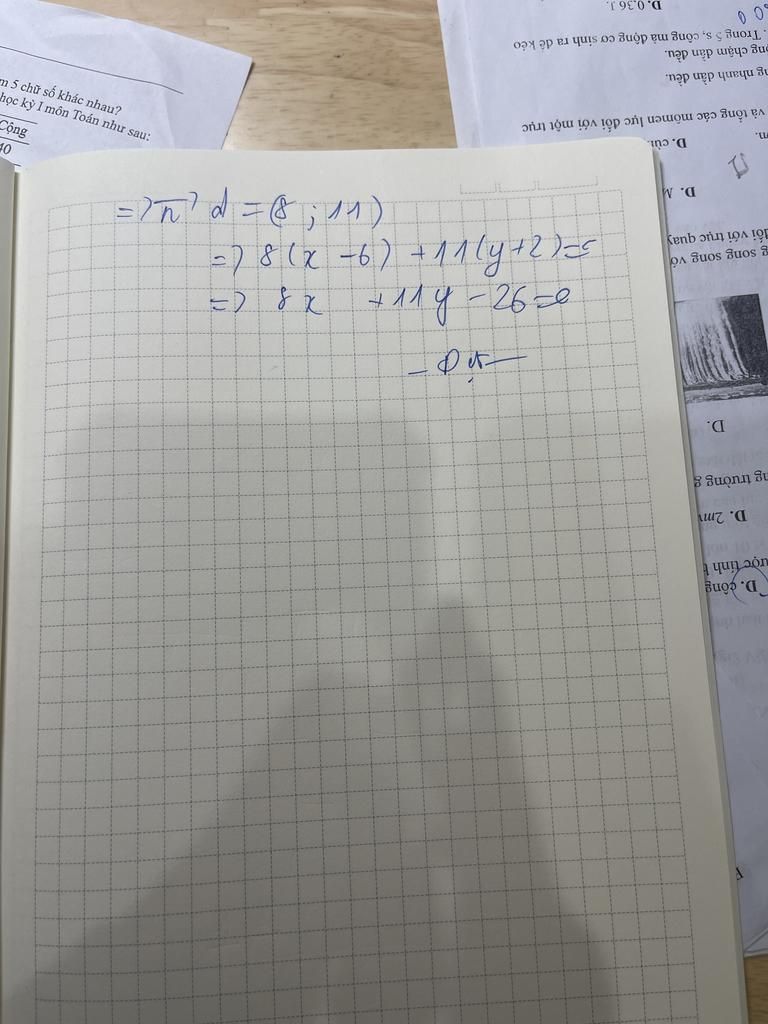 m 5 chữ số khác nhau?
học kỳ I môn Toán như sau:
Cộng
40
D. 0,36 J.
. Trong 5 s, công mà động cơ sinh ra để kéo
ng chậm dần đều.
ng nhanh dần đều.
và tổng các mômen lực đối với một trục
D.
D. M
đối với trục quay
g song song
D.
ng trường g
D. 2mv
ược tính
D. công
=> n d = (8 ; 11)
=> 8(x - 6) + 11(y + 2) = 0
=> 8x + 11y - 26 = 0